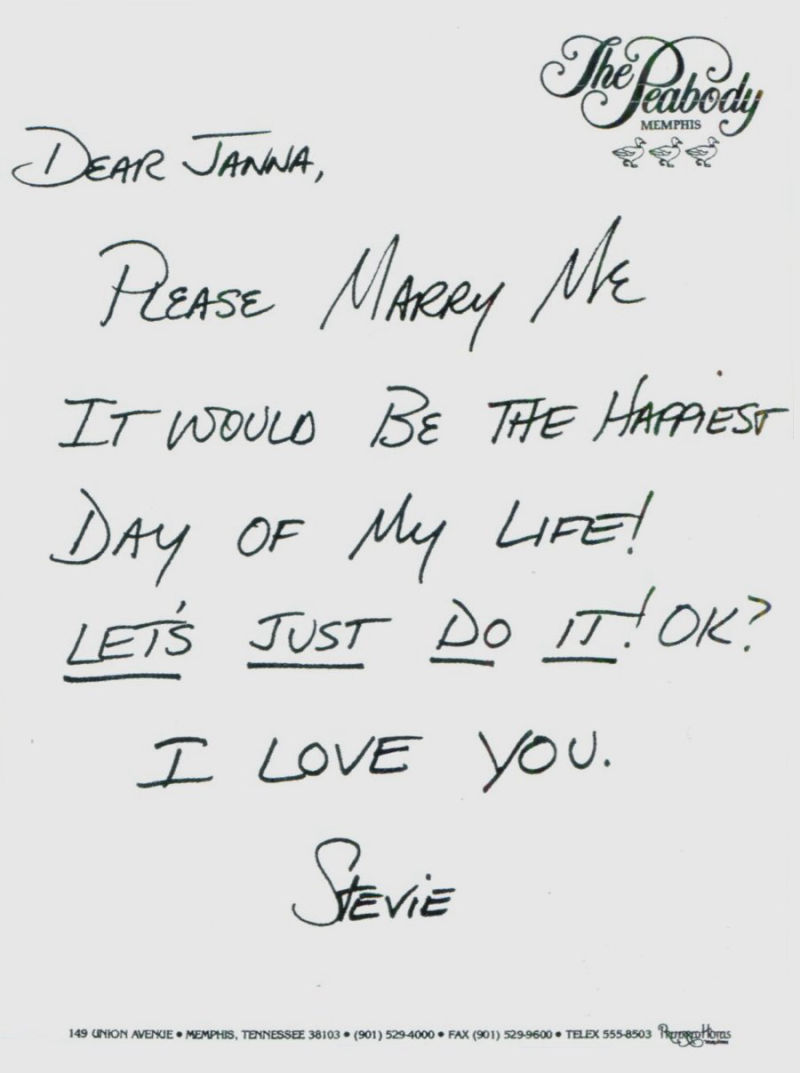 The Peabody
MEMPHIS
DEAR JANNA,
PLEASE MARRY ME
IT WOULD BE THE HAPPIEST
DAY OF MY LIFE!
LET'S JUST DO IT! OK?
I LOVE YOU.
STEVIE
149 UNION AVENUE • MEMPHIS, TENNESSEE 38103 • (901) 529-4000 • FAX (901) 529-9600 • TELEX 555-8503 Preferred Hotels